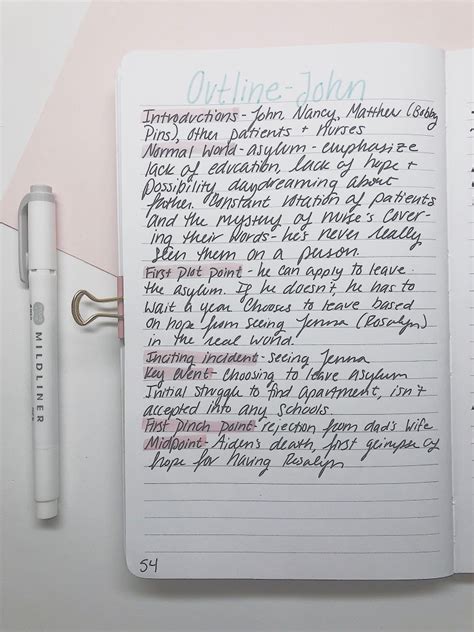 Outline-John
Introductions - John, Nancy, Matthew (Bobby
Pins), other patients + nurses
Normal World - asylum - emphasize
lack of education, lack of hope +
possibility, daydreaming about
father. Constant rotation of patients
and the mystery of nurse's cover-
ing their words - he's never really
seen them on a person.
First Plot Point - he can apply to leave
the asylum. If he doesn't, he has to
wait a year. Chooses to leave based
on hope from seeing Jenna (Rosalyn)
in the real world.
Inciting incident - seeing Jenna
Key Event - Choosing to leave Asylum
Initial struggle to find apartment, isn't
accepted into any schools.
First Pinch Point - rejection from dad's wife
Midpoint - Aiden's death, first glimpse of
hope for having Rosalyn
54
MILDLINER